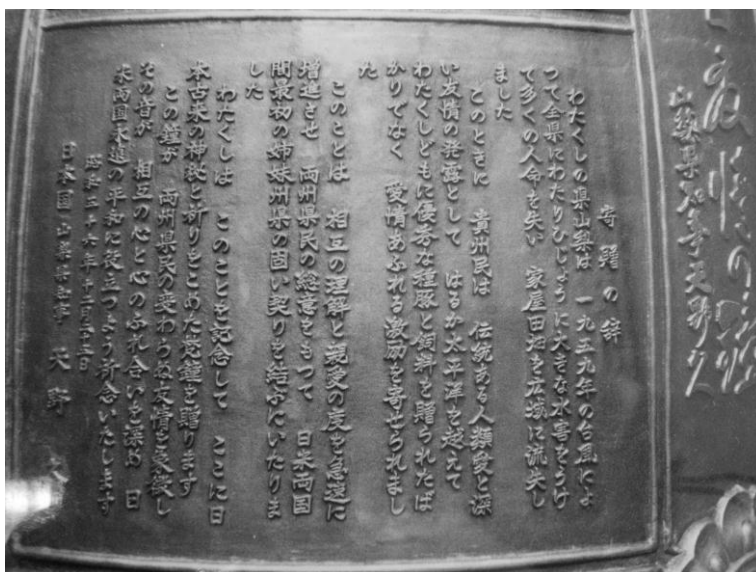 寄鐘の辞
わたくしの県山梨は 一九五九年の台風によ
つて全県にわたりひじように大きな水害をうけ
て多くの人命を失い 家屋田畑を広域に流失し
ました
このときに 貴州民は 伝統ある人類愛と深
い友情の発露として はるか太平洋を越えて
わたくしどもに優秀な種豚と飼料を贈られたば
かりでなく 愛情あふれる激励を寄せられまし
た
このことは 相互の理解と親愛の度を急速に
増進させ 両州県民の総意をもつて 日米両国
間最初の姉妹州県の固い契りを結ぶにいたりま
した
わたくしは このことを記念して ここに日
本古来の神秘と祈りをこめた梵鐘を贈ります
この鐘が 両州県民の変わらぬ友情を象徴し
その音が 相互の心と心のふれ合いを深め 日
米両国永遠の平和に役立つよう祈念いたします
昭和三十六年十二月二十五日
日本国山梨県知事 天野 久
山梨県知事天野久